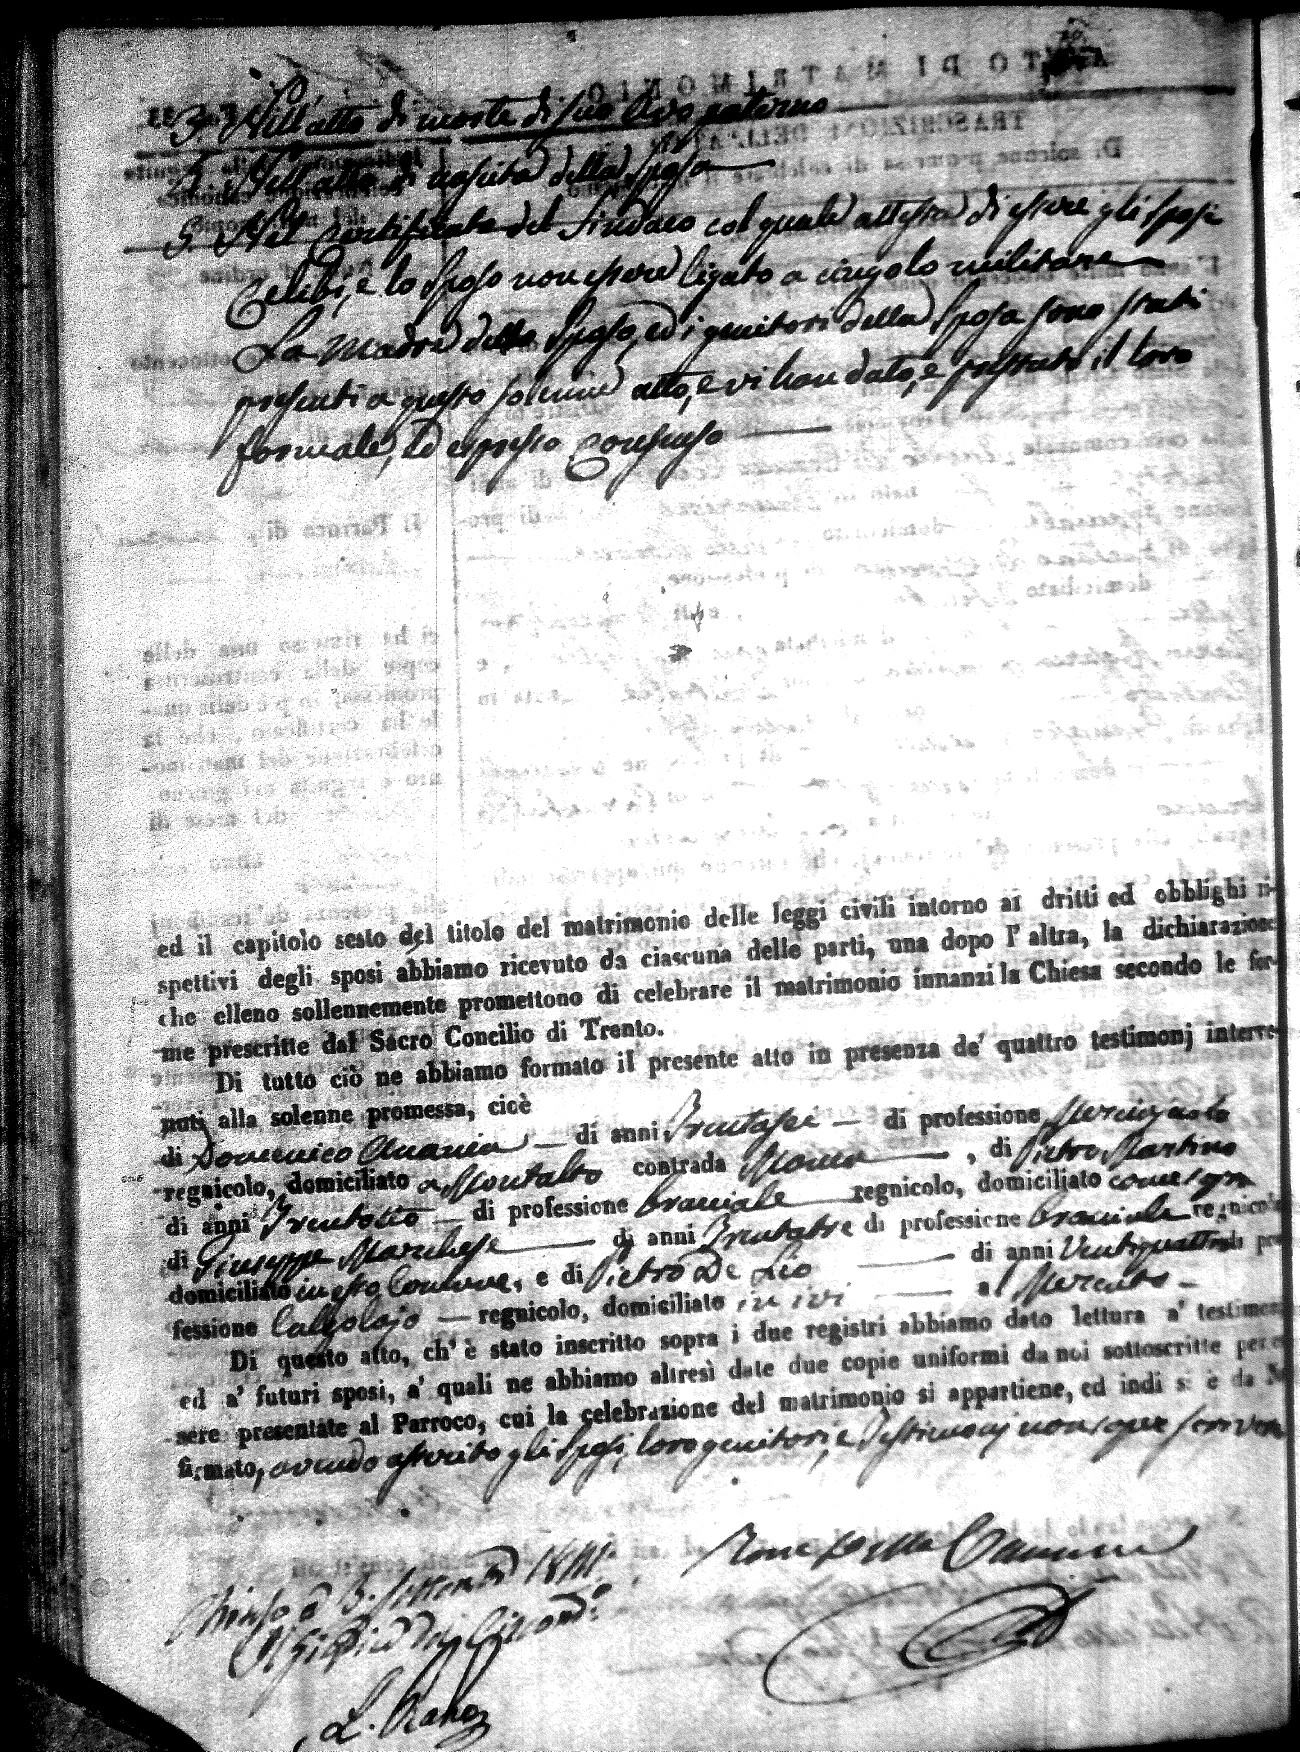 3. Nell'atto di morte di suo Avo paterno
4. Nell'atto di nascita della Sposa
5. Nel Certificato del Sindaco col quale attesta di essere gli Sposi
Celibi, e lo Sposo non essere ligato a cingolo militare
La Madre dello Sposo, ed i genitori della Sposa sono stati
presenti a questo solenne atto, e vi han dato, e prestato il loro
formale, ed espresso Consenso
ed il capitolo sesto del titolo del matrimonio delle leggi civili intorno ai dritti ed obblighi ri-
spettivi degli sposi abbiamo ricevuto da ciascuna delle parti, una dopo l'altra, la dichiarazione
che elleno sollennemente promettono di celebrare il matrimonio innanzi la Chiesa secondo le for-
me prescritte dal Sacro Concilio di Trento.
Di tutto ciò ne abbiamo formato il presente atto in presenza de' quattro testimonj interve-
nuti alla solenne promessa, cioè
di Domenico Anania di anni Trentasei di professione
regnicolo, domiciliato a Montalto contrada , di Pietro Martino
di anni Trentotto di professione bracciale regnicolo, domiciliato come sopra
di Giuseppe Marchese di anni Trentatre di professione bracciale regnicolo
domiciliato in esto Comune, e di Pietro De Leo di anni Ventiquattro di pro
fessione Calzolajo regnicolo, domiciliato in ivi a
Di questo atto, ch' è stato inscritto sopra i due registri abbiamo dato lettura a' testimonj
ed a' futuri sposi, a' quali ne abbiamo altresì date due copie uniformi da noi sottoscritte per es
sere presentate al Parroco, cui la celebrazione del matrimonio si appartiene, ed indi si è da N
firmato, avendo asserito gli Sposi, loro genitori, e Testimonj non saper scrivere
a 3. Settembre
Il Giudice del Circond.º
L.